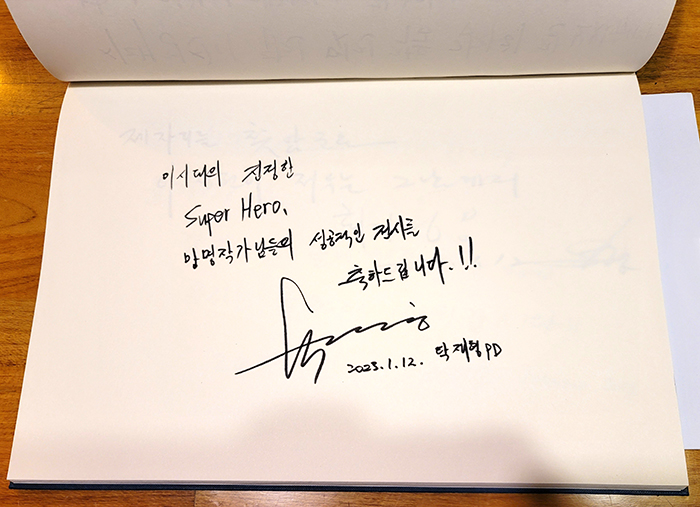 이시대의 진정한
Super Hero,
망명작가님들의 성공적인 전시를
축하드립니다.!!
2023.1.12. 탁재형PD